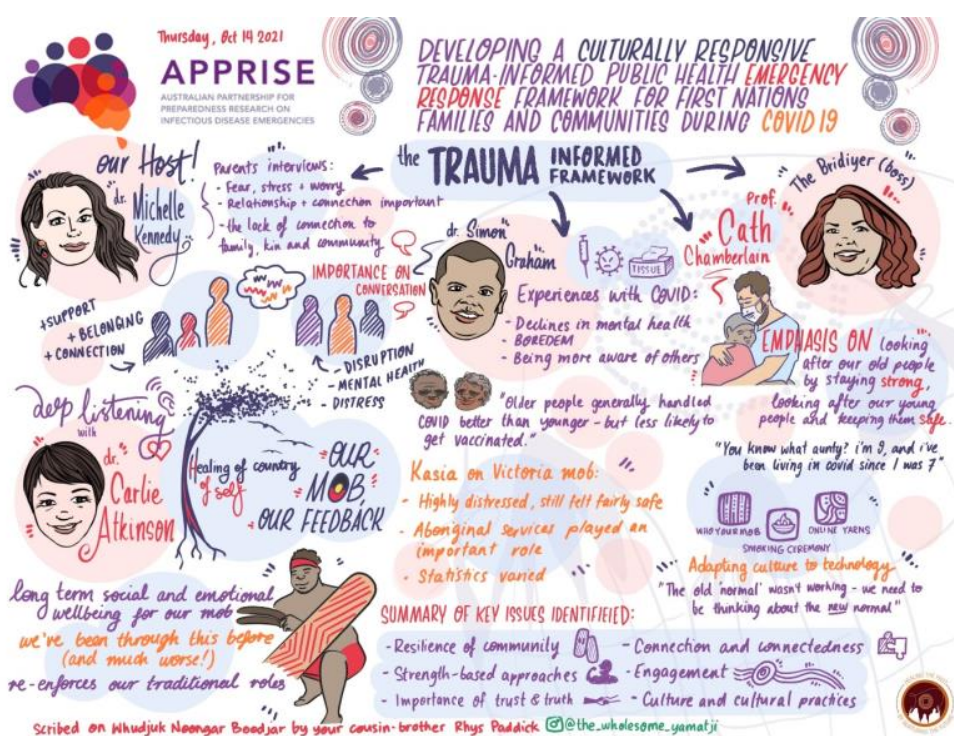 Thursday, Oct 14 2021
APPRISE
AUSTRALIAN PARTNERSHIP FOR
PREPAREDNESS RESEARCH ON
INFECTIOUS DISEASE EMERGENCIES
DEVELOPING A CULTURALLY RESPONSIVE
TRAUMA-INFORMED PUBLIC HEALTH EMERGENCY
RESPONSE FRAMEWORK FOR FIRST NATIONS
FAMILIES AND COMMUNITIES DURING COVID 19
our Host!
dr. Michelle
Kennedy
Parents interviews:
- Fear, stress + worry
- Relationship + connection important
- the lack of connection to
family, kin and community
the TRAUMA INFORMED
FRAMEWORK
The Bridiyer (boss)
Prof.
Cath
Chamberlain
dr. Simon
Graham
TISSUE
IMPORTANCE ON
CONVERSATION
+SUPPORT
+ BELONGING
+ CONNECTION
- DISRUPTION
- MENTAL HEALTH
- DISTRESS
Experiences with COVID:
- Declines in mental health
- BOREDEM
- Being more aware of others
EMPHASIS ON looking
after our old people
by staying strong,
looking after our young
people and keeping them safe.
"Older people generally handled
COVID better than younger - but less likely to
get vaccinated."
deep listening
with
dr.
Carlie
Atkinson
Healing of country
of self
OUR
MOB,
OUR FEEDBACK
Kasia on Victoria mob:
- Highly distressed, still felt fairly safe
- Aboriginal services played an
important role
- Statistics varied
"You know what aunty? i'm 9, and i've
been living in covid since I was 7"
WHO YOUR MOB
SMOKING CEREMONY
ONLINE YARNS
Adapting culture to technology
"The 'old normal' wasn't working - we need to
be thinking about the new normal"
long term social and emotional
wellbeing for our mob
we've been through this before
(and much worse!)
re-enforces our traditional roles
SUMMARY OF KEY ISSUES IDENTIFIFIED:
- Resilience of community
- Strength-based approaches
- Importance of trust & truth
- Connection and connectedness
- Engagement
- Culture and cultural practices
Scribed on Whudjuk Noongar Boodjar by your cousin-brother Rhys Paddick @the_wholesome_yamatji